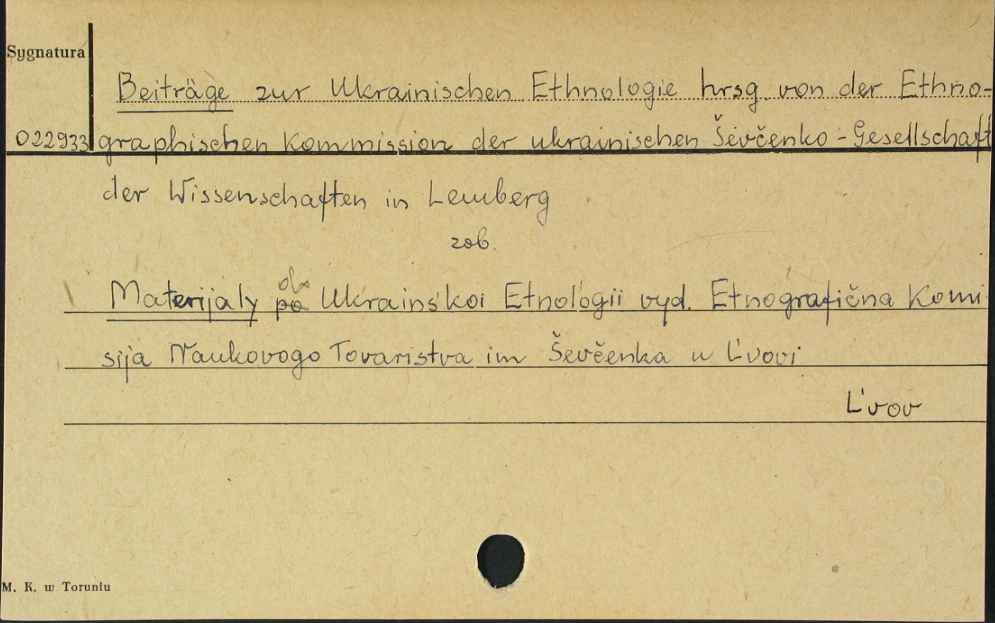 Sygnatura
Beiträge zur Ukrainischen Ethnologie hrsg von der Ethno-
022933 graphischen Kommission der ukrainischen Ševčenko-Gesellschaft
der Wissenschaften in Lemberg
zob.
Materijaly po do Ukrains'koi Etnologii vyd. Etnografična Komi
sija Naukovogo Tovaristva im Ševčenka u L'vovi
L'vov
M. K. w Toruniu